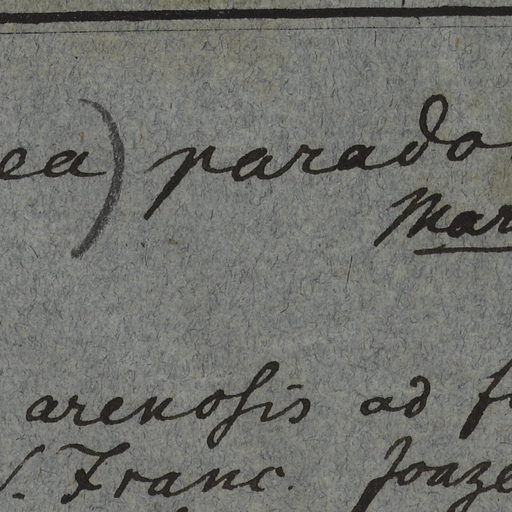 ea) parado
Mar
arenosis ad f
S. Franc. Joaze